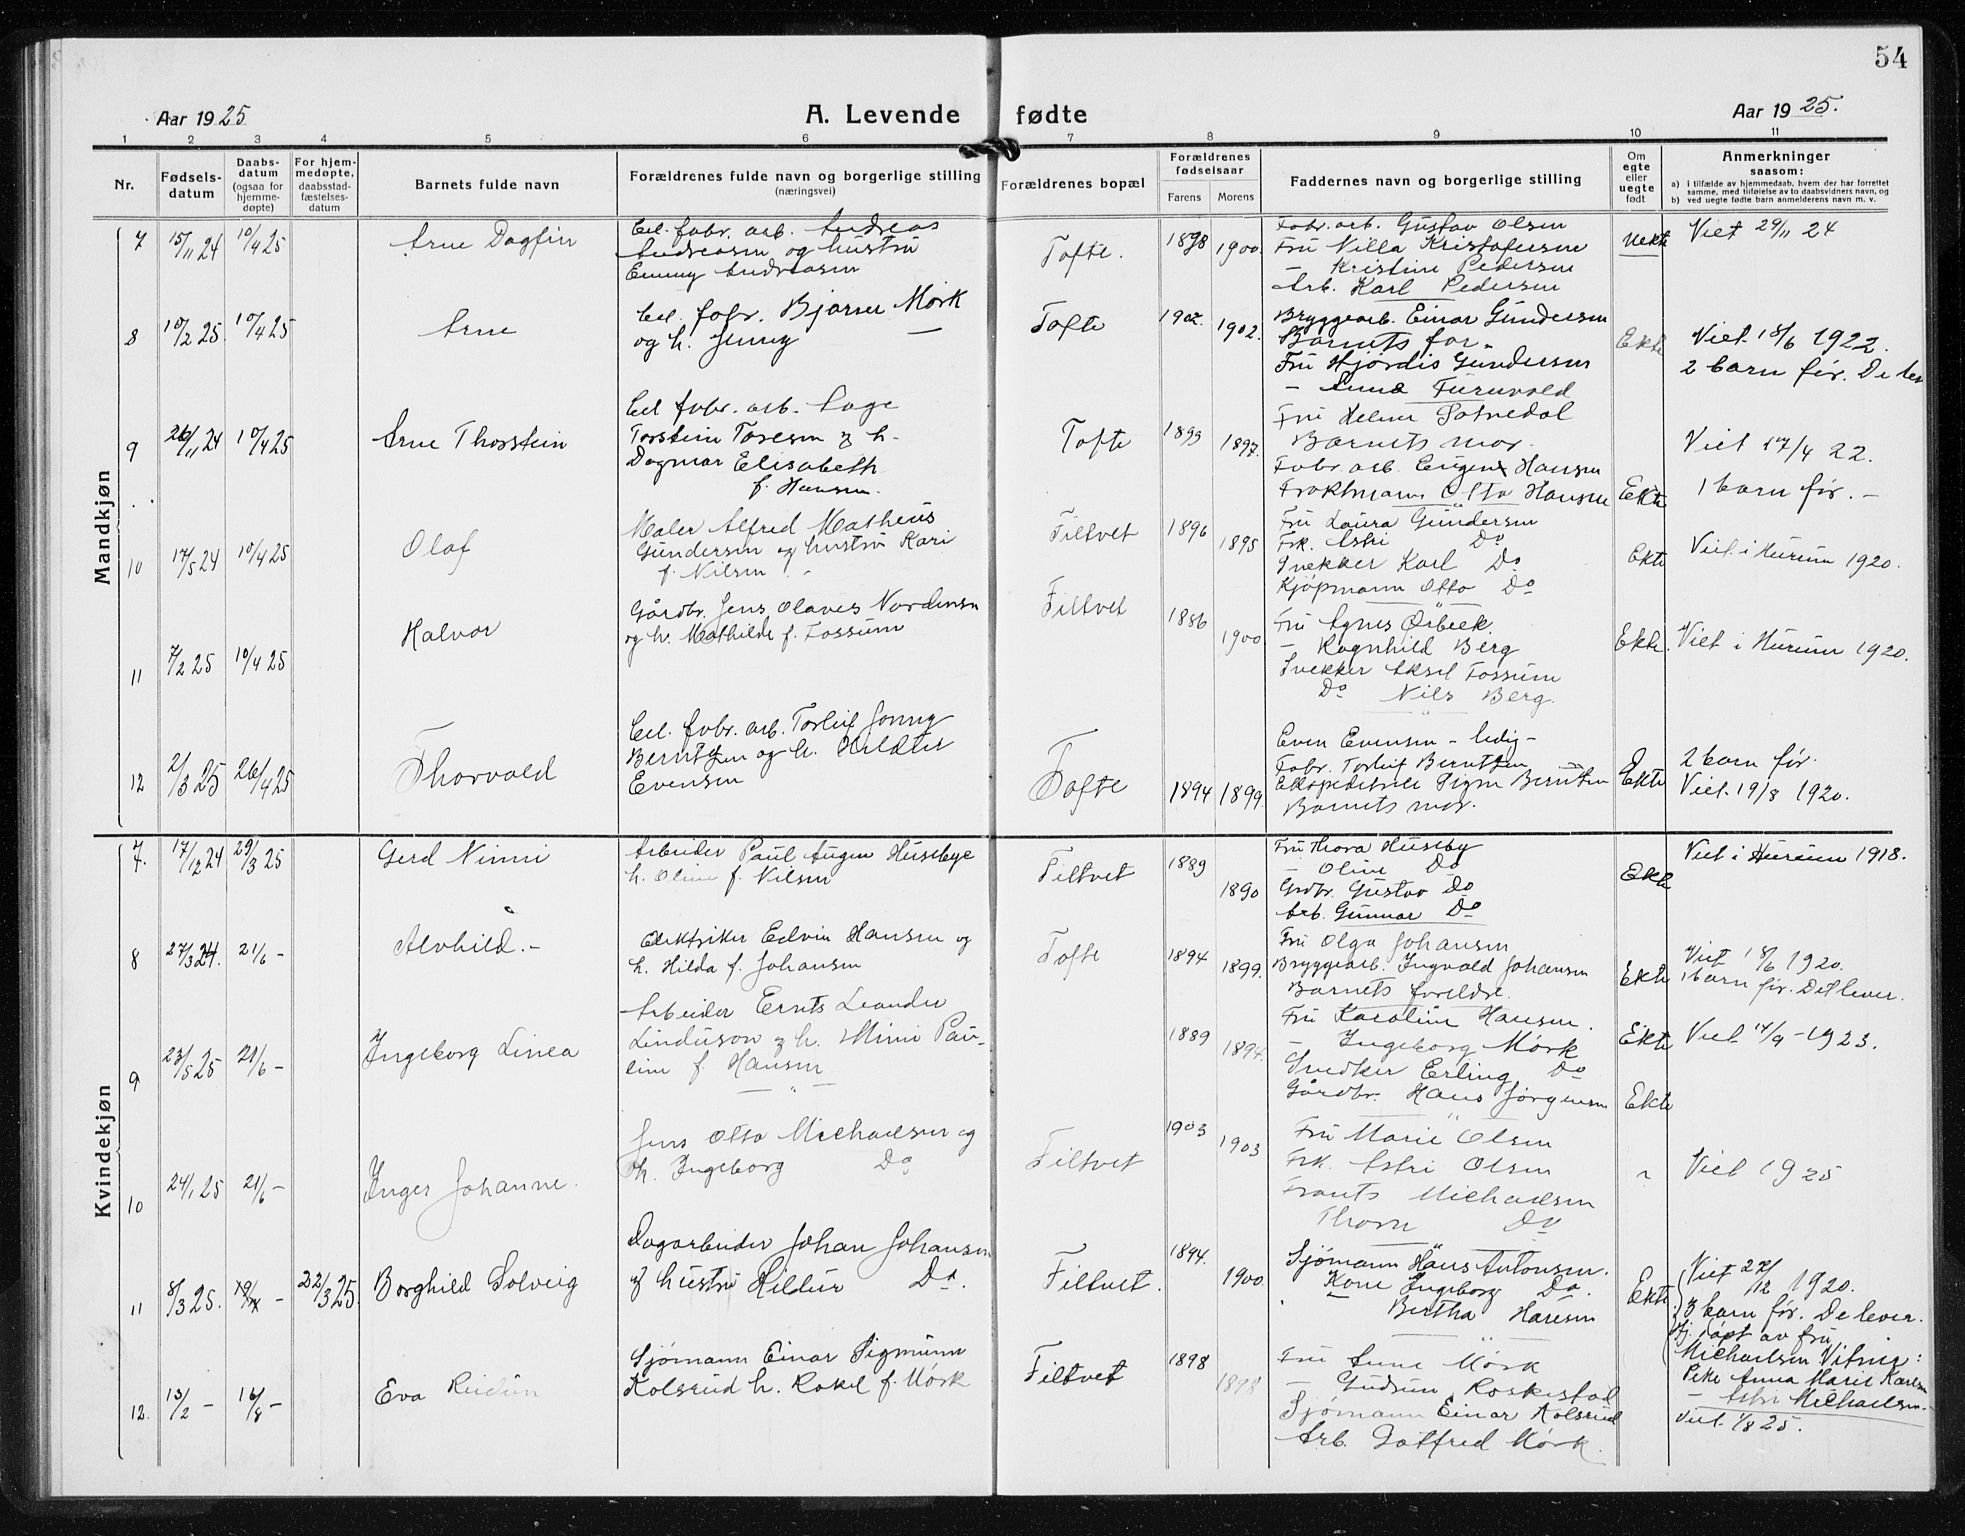 54
Aar 1925
A. Levende fødte
Aar 1925.
1 2 3 4 5 6 7 8 9 10 11
Nr.
Fødsels-
datum
Daabs-
datum
(ogsaa for
hjemme-
døpte)
For hjem-
medøpte,
daabsstad-
fæstelses-
datum
Barnets fulde navn
Forældrenes fulde navn og borgerlige stilling
(næringsvei)
Forældrenes bopæl
Forældrenes
fødselsaar
Farens Morens
Faddernes navn og borgerlige stilling
Om
egte
eller
uegte
født
Anmerkninger
saasom:
a) i tilfælde av hjemmedaab, hvem der har forrettet
samme, med tilføielse av to daabsvidners navn, og
b) ved uegte fødte barn anmelderens navn m. v.
Mandkjøn
7 15/11 24 10/4 25 Arne Dagfin
Cel. fabr. arb. Andreas
Andreasen og hustru
Emmy Andreasen
Tofte. 1898 1900.
Fabr. arb. Gustav Olsen
Fru Villa Kristofersen
— Kristine Pedersen
Arb. Karl Pedersen
Uekte
Viet 29/11 24
8 10/2 25. 10/4 25 Arne
Cel. fabr. Bjarne Mørk
og h. Jenny —
Tofte 1902. 1902.
Bryggearb. Einar Gundersen
Barnets far.
Fru Hjördis Gundersen
— Anna Furuvald
Ekte
Viet 18/6 1922.
2 barn før. De lev
9 26/11 24 10/4 25 Arne Thorstein
Cel fabr. arb. Aage
Torstein Toresen og h.
Dagmar Elisabeth
f. Hansen.
Tofte 1899 1897.
Fru Helene Solnedal
Barnets mor.
Fabr. arb. Eugen Hansen
Fraktmann Otto Hansen
Ekte
Viet 17/4 22.
1 barn før. —
10 17/5 24 10/4 25 Olaf
Maler Alfred Matheus
Gundersen og hustru Kari
f. Nilsen
Filtvet 1896 1895
Fru Laura Gundersen
Frk. Astri Do
Snekker Karl Do
Kjöpmann Otto Do
Ekte
Viet i Hurum 1920.
11 7/2 25 10/4 25 Halvor
Gårdbr. Jens Olaves Nordensen
og h. Mathilde f. Fossum
Filtvet 1886 1900
Fru Agnes Örbeck.
— Ragnhild Berg
Snekker Aksel Fossum
Do Nils Berg.
Ekte.
Viet i Hurum 1920.
12 2/3 25 26/4 25 Thorvald
Cel. fabr. arb. Torleif Jonny
Berntzen og h. Hildur
Evensen
Tofte 1894 1899.
Even Evensen – ledig –
Fabr. Torleif Berntzen
Ekspeditrise Signe Berntzen
Barnets mor.
Ekte
2 barn før.
Viet 19/8 1920.
Kvindekjøn
7. 17/12 24 29/3 25 Gerd Ninni
Arbeider Paul Augen Husebye
h. Oline f. Nilsen
Filtvet 1889 1890
Fru Thora Huseby
— Oline Do
Grdbr. Gustav Do
Arb. Gunnar Do
Ekte
Viet i Hurum 1918.
8 27/3 24. 21/6 – Alvhild. –
Elektriker Edvin Hansen og
h. Hilda f. Johansen
Tofte 1894 1899.
Fru Olga Johansen
Bryggearb. Ingvald Johansen
Barnets foreldre.
Ekte
Viet 18/6 1920.
1 barn før. Det lever.
9 23/5 25 21/6 – Ingeborg Linea
Arbeider Ernts Leander
Linduson og h. Mimi Pau-
line f. Hansen
1889 1894.
Fru Karoline Hansen.
— Ingeborg Mørk
Snedker Erling Do
Gårdbr. Hans Jørgensen
Ekte
Ekte
Viet 14/9 – 1923.
10 24/1 25 21/6 – Inger Johanne.
Jens Otto Michaelsen og
h. Ingeborg Do
Filtvet 1903 1903
Fru Marie Olsen
Frk. Astri Olsen
Frants Michaelsen
Thorn Do
"
Viet 1925
11 8/3 25. 19/4 – 22/3 25. Borghild Solveig
Dagarbeider Johan Johansen
og hustru Hildur Do.
Filtvet. 1894. 1900.
Sjömann Hans Antonsen.
Kone Ingeborg Do.
— Bertha Hansen
Ekte
Viet 27/12 1920.
3 barn før. De lever.
Hj. döpt av fru
Michaelsen Vitner:
Pike Anna Marie Karlsen
— Astri Michaelsen.
12. 13/2 – 16/8 – Eva Reidun
Sjömann Einar Sigmunn
Kolsrud h. Rakel f. Mørk
Filtvet 1898 1898
Fru Anne Mørk
— Gudrun Roskestad
Sjømann Einar Kolsrud
Arb. Gotfred Mørk.
Viet 1/8 25.